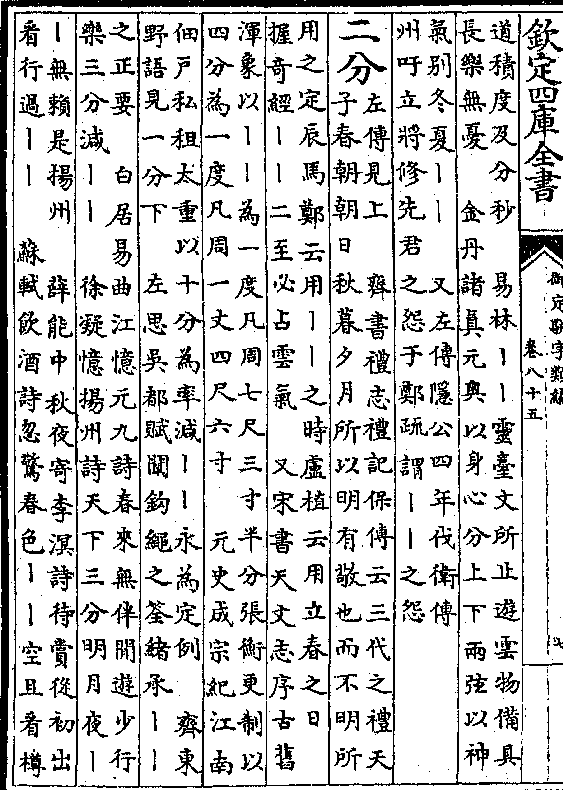 欽定四庫全書
御定駢字類編
卷八十五
七
道積度及分秒 易林丨丨靈臺文所止遊雲物備具
長樂無憂 金丹諸真元奧以身心分上下兩弦以神
氣别冬夏丨丨 又左傳隱公四年伐衛傳
州吁立將修先君之怨于鄭疏謂丨丨之怨
二分
左傳見上 齊書禮志禮記保傅云三代之禮天
子春朝朝日秋暮夕月所以明有敬也而不明所
用之定辰馬鄭云用丨丨之時盧植云用立春之日
握奇經丨丨二至必占雲氣 又宋書天文志序古舊
渾象以丨丨為一度凡周七尺三寸半分張衡更制以
四分為一度凡周一丈四尺六寸 元史成宗紀江南
佃戶私租太重以十分為率減丨丨永為定例 齊東
野語見一分下 左思吳都賦闡鈎繩之筌緒承丨丨
之正要 白居易曲江憶元九詩春來無伴閒遊少行
樂三分減丨丨 徐凝憶揚州詩天下三分明月夜丨
丨無賴是揚州 薛能中秋夜寄李溟詩待賞從初出
看行過丨丨 蘇軾飲酒詩忽驚春色丨丨空且看樽